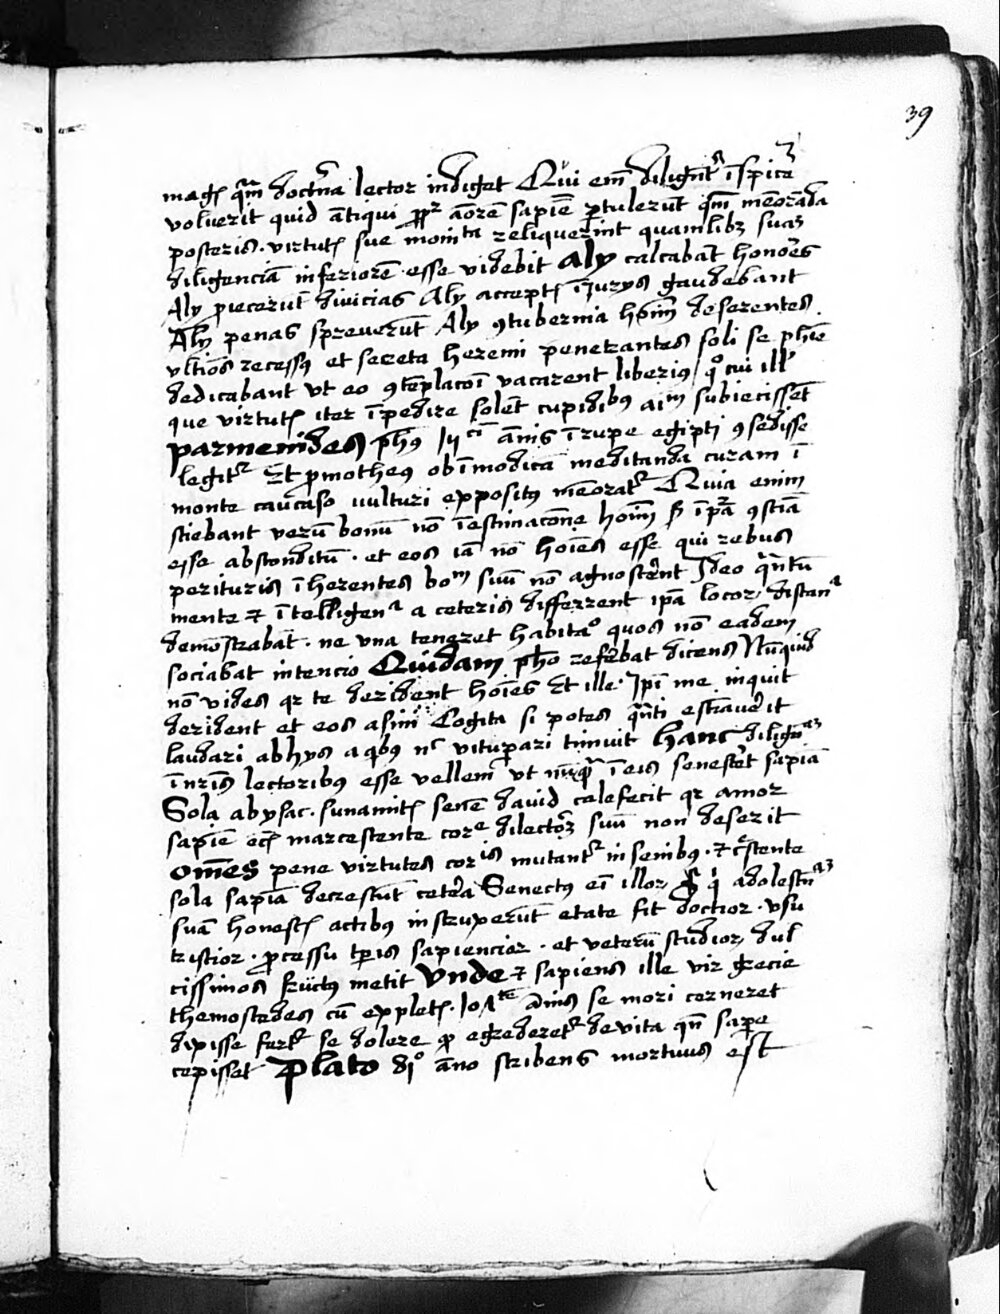 39
mag̃ q̃m doct'na lector indiget Qui em̃ diligent' ĩspice
voluerit quid ãtiqui ꝓpt' aõrem sapiẽ ptulerũt q̃m mẽoranda
posteris. virtut sue moĩta reliquerint quamlib3 suaȝ
diligenciã inferiorẽ esse videbit Aly calcabãt honores
Aly piecerũt diuicias Aly accept iĩuriis gaudebant
Aly penas spreuerũt Aly ꝯtubernia hoĩm deserentes.
vltĩos recessꝰ et secreta heremi penetrantes soli se phĩe
dedicabant vt eo ꝯtẽplacõĩ vacarent liberiꝰ q° cũ ill'
que virtut iter ĩpedire solẽt cupidibꝰ aĩm subiecissẽt
Parmenides phꝰ ãnis ĩ rupe egipti ꝯsedisse
legit' Et pmotheꝰ ob ĩmodicã meditanda curam ĩ
monte caucaso vulturi expositꝰ mẽorat' Quia enim
sciebant verũ bonũ nõ ĩ estimacõne hoĩm s ĩ ip̃a ꝯsciã
esse absconditũ. et eos iã nõ hoĩes esse qui rebus
perituris ĩherentes boᵐ suũ nõ agnoscerent Ideo q̃ntũ
mente ⁊ ĩtelligenᵃ a ceteris differrent ip̃a locor distanᵃ
demõstrabãt. ne vna teneret habita° quos nõ eadem
sociabat intencio Quidam ph̃o referebat dicens Nũquid
nõ vides qr te derident hoĩes Et ille. Ip̃i me inquit
derident et eos asini Cogita si potes q̃nti est'auerit
laudari ab hys a qbꝰ nᶜ vituperari timuit Hanc diligẽᵃȝ
ĩ nr̃is lectoribꝰ esse vellem vt nũq̃ ĩ eis senesceret sapiã
Sola abysac. sunamit senẽ dauid calefecit qr amor
sapiẽ eĉ marcescente corᵉ dilectoȝ suũ non deserit
Omẽs pene virtutes corⁱˢ mutant' in senibꝰ. ⁊ c'scente
sola sapiã decrescũt cetera Senectꝰ eĩ illor qⁱ adolescẽᵃȝ
suã honest actibꝰ instruxerũt etate fit doctior. vsu
tristior. ꝓcessu tp̃is sapiencior. et veterũ studior dul
cissimos fructꝰ metit Vnde ⁊ sapiens ille vir grecie
themostedes cũ explet. 107ᵗᵉ ãnis se mori cerneret
dixisse fert' se dolere ꝙ egrederet' de vita qñ sape
cepisset Plato 81° ãno scribens mortuus est